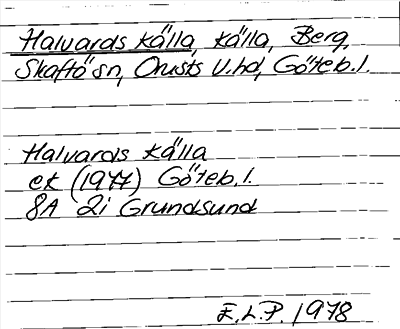 Halvards källa, källa, Berg,
Skaftö sn, Orusts V. hd, Göteb. l.
Halvards källa
ek (1977) Göteb. l.
8A 2i Grundsund
E.L.P. 1978